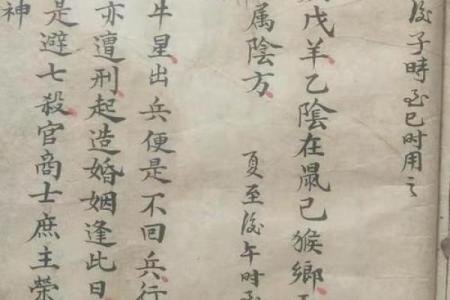 後子時至巳时用之
戊羊乙陰在鼠己猴鄉
属陰方
夏至後午时至
牛星出兵便是不回兵行
亦遭刑起造婚姻逢此日
是避七殺官商士庶主榮
神